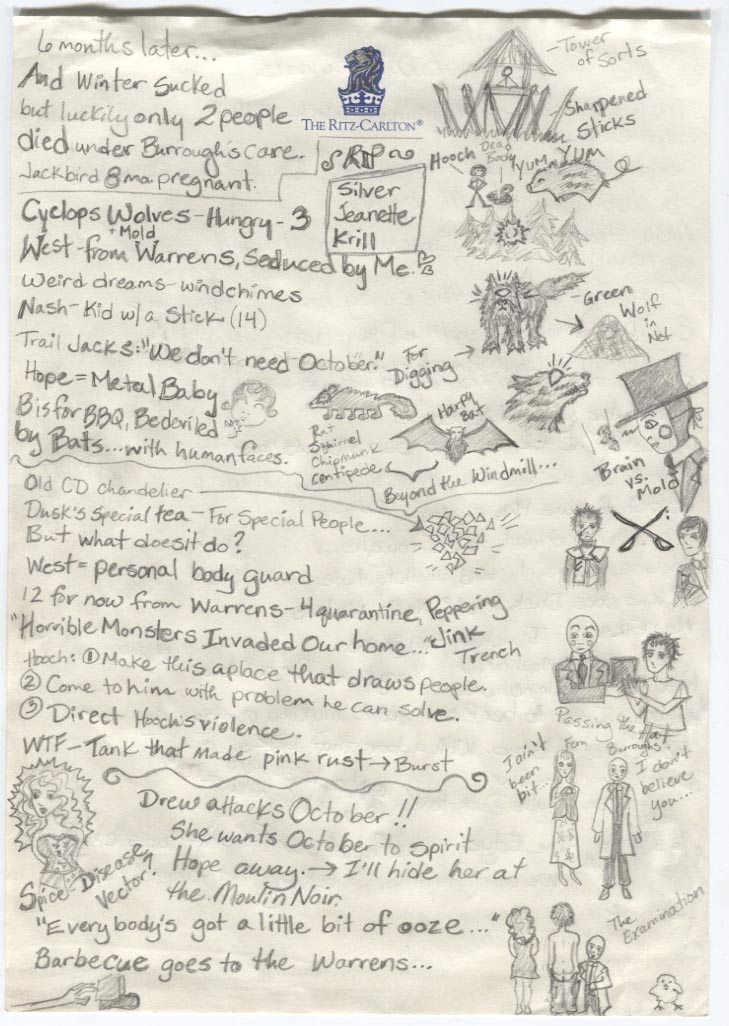 6 months later...
And Winter Sucked
but luckily only 2 people
died under Burrough's care.
Jackbird 8 mo. pregnant.
THE RITZ-CARLTON®
RIP
Silver
Jeanette
Krill
Tower
of Sorts
Sharpened
Sticks
Hooch
Dead
Body
YUM YUM
Cyclops Wolves - Hungry - 3
+ Mold
West - from Warrens, Seduced by Me.
Weird dreams - windchimes
Nash - Kid w/a Stick (14)
Trail Jacks: "We don't need October."
Hope = Metal Baby
B is for BBQ, Bedeviled
by Bats... with human faces.
For
Digging
Green
Wolf
in
Net
Rat
Squirrel
Chipmunk
Centipede
Harpy
Bat
Beyond the Windmill...
Brain
vs.
Mold
Old CD chandelier
Dusk's Special tea - For Special People...
But what does it do?
West = personal body guard
12 for now from Warrens - 4 quarantine, Peppering
"Horrible Monsters Invaded Our home..." Jink
Trench
Hooch: ① Make this a place that draws people.
② Come to him with problem he can solve.
③ Direct Hooch's violence.
WTF - Tank that made pink rust → Burst
Passing the Hat
I ain't
been
bit...
Fern
Burroughs
I don't
believe
you...
Drew attacks October!!
She wants October to spirit
Hope away. → I'll hide her at
the Moulin Noir.
Spice - Disease
Vector?
"Everybody's got a little bit of ooze..."
Barbecue goes to the Warrens...
The
Examination